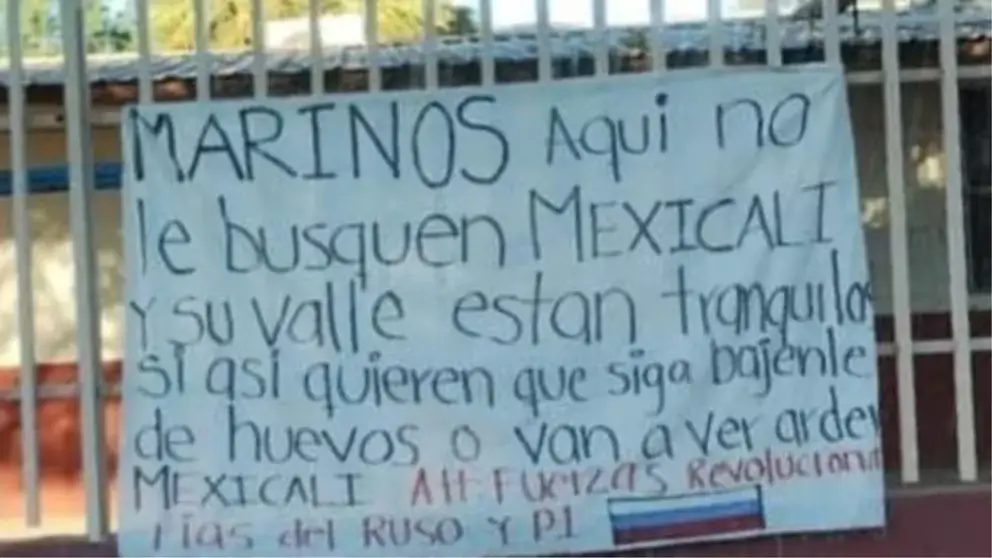 MARINOS Aqui no
le busquen MEXICALI
Y su valle estan tranquilos
si asi quieren que siga bajenle
de huevos o van a ver arder
MEXICALI Att Fuerzas Revoluciona
rias del RUSO Y P1